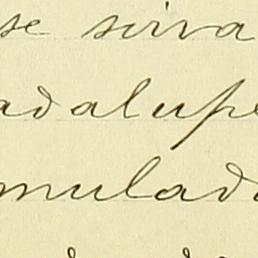 se sirva
adalupe
mulada